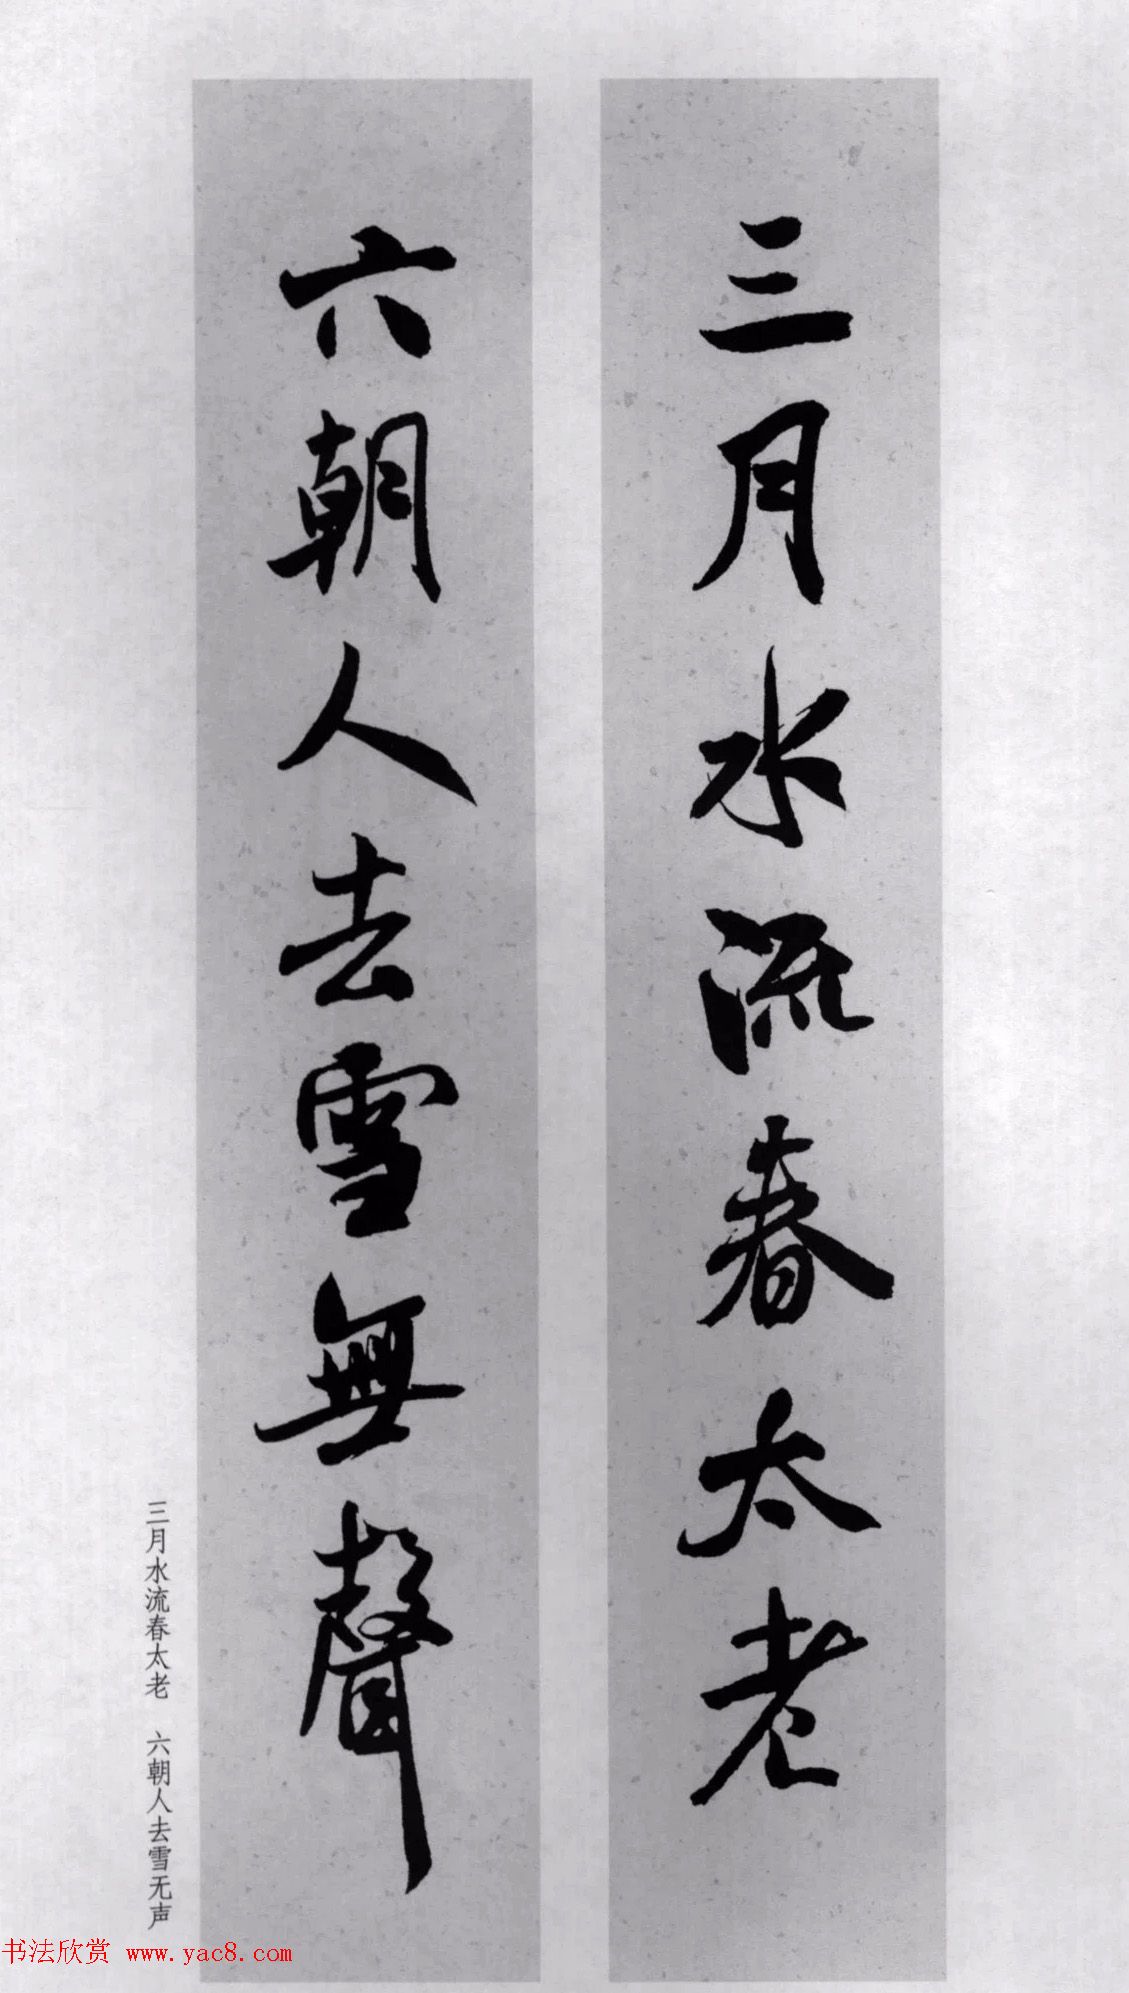 三月水流春太老
六朝人去雪無聲
三月水流春太老　六朝人去雪无声
书法欣赏 www.yac8.com